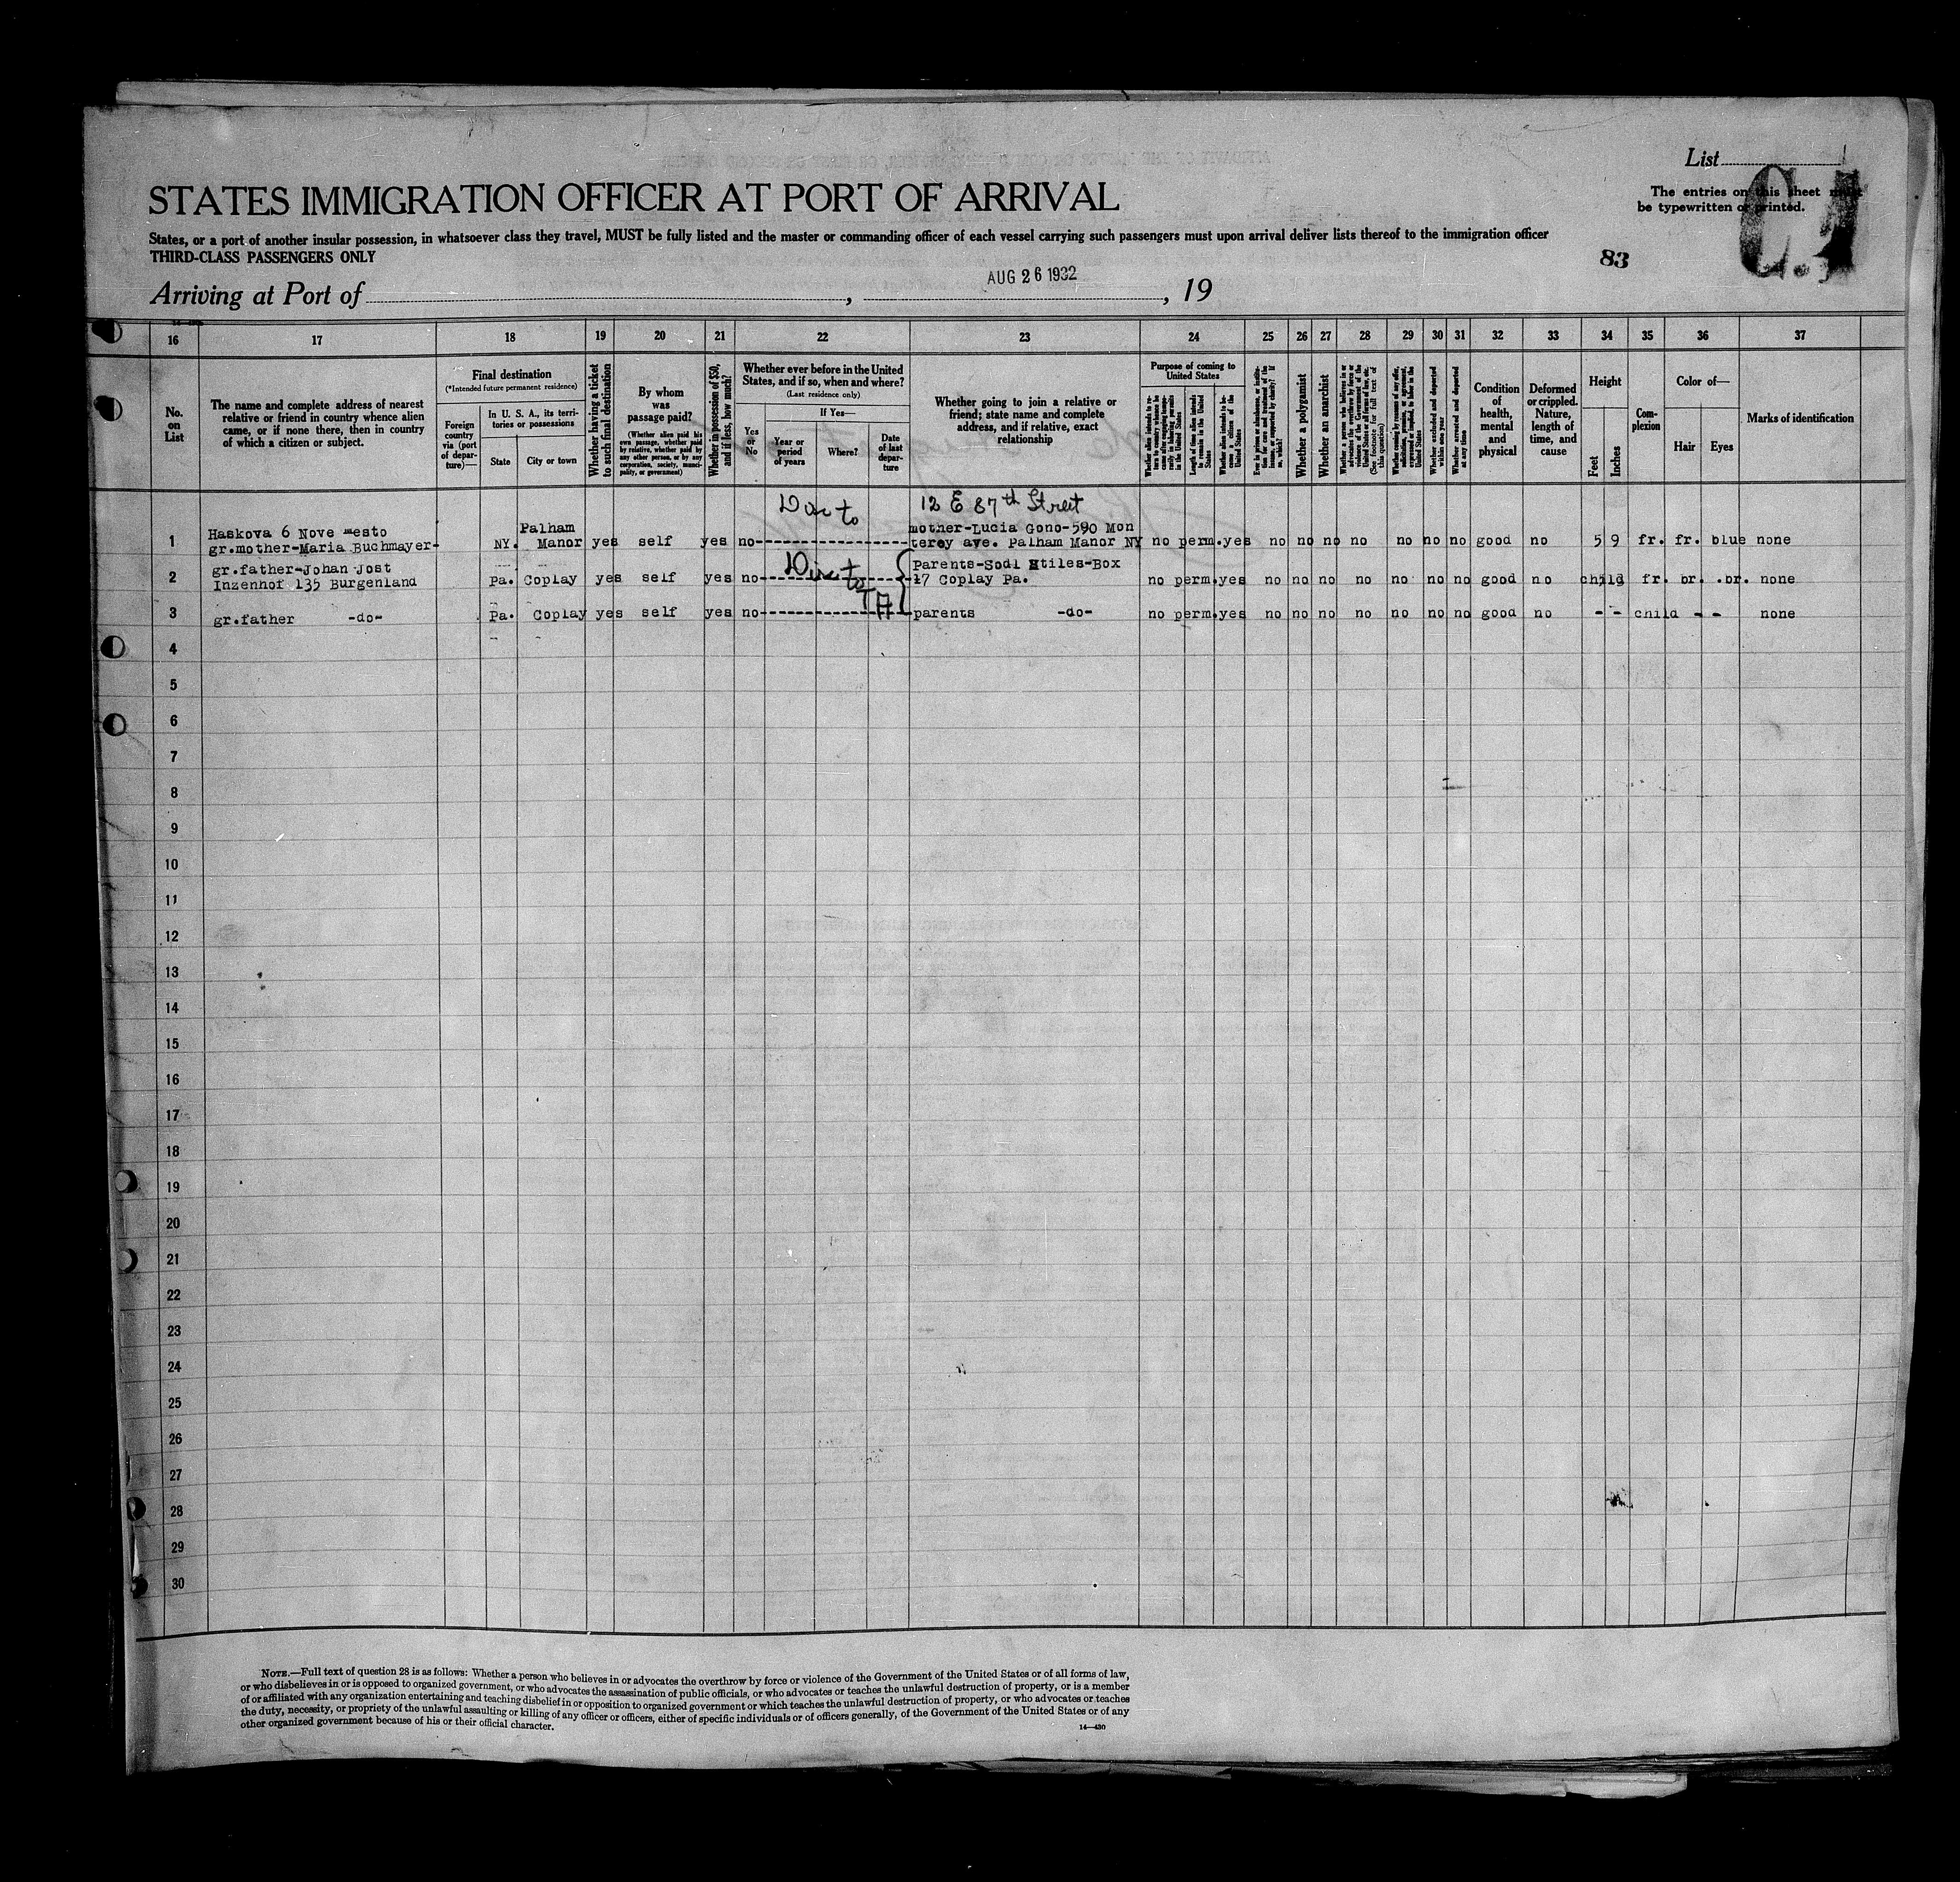 List
The entries on this sheet must
be typewritten or printed.
STATES IMMIGRATION OFFICER AT PORT OF ARRIVAL
States, or a port of another insular possession, in whatsoever class they travel, MUST be fully listed and the master or commanding officer of each vessel carrying such passengers must upon arrival deliver lists thereof to the immigration officer
THIRD-CLASS PASSENGERS ONLY
83
AUG 26 1932
Arriving at Port of , , 19
16 17 18 19 20 21 22 23 24 25 26 27 28 29 30 31 32 33 34 35 36 37
No. on List
The name and complete address of nearest
relative or friend in country whence alien
came, or if none there, then in country
of which a citizen or subject.
Final destination
(*Intended future permanent residence)
Foreign country via (port of departure)—
In U. S. A., its territories or possessions
State
City or town
Whether having a ticket to such final destination
By whom was passage paid?
(Whether alien paid his own passage, whether paid by relative, whether paid by any other person, or by any corporation, society, municipality, or government)
Whether in possession of $50, and if less, how much?
Whether ever before in the United
States, and if so, when and where?
(Last residence only)
Yes or No
If Yes—
Year or period of years
Where?
Date of last departure
Whether going to join a relative or
friend; state name and complete
address, and if relative, exact
relationship
Purpose of coming to United States
Length of time alien intends to remain in the United States
Whether alien intends to become a citizen of the United States
Whether a polygamist
Whether an anarchist
Whether excluded and deported within one year
Whether arrested and deported at any time
Condition of health, mental and physical
Deformed or crippled. Nature, length of time, and cause
Height
Feet
Inches
Complexion
Color of—
Hair
Eyes
Marks of identification
12 E 87th Street
1 Haskova 6 Nove mesto Palham mother-Lucia Gono-590 Mon
gr.mother-Maria Buchmayer- NY. Manor yes self yes no terey ave. Palham Manor NY no perm. yes no no no no no no no good no 5 9 fr. fr. blue none
2 gr.father-Johan Jost Parents-Sodl Stiles-Box
Inzenhof 135 Burgenland Pa. Coplay yes self yes no 17 Coplay Pa. no perm. yes no no no no no no no good no child fr. br. br. none
3 gr.father -do- Pa. Coplay yes self yes no parents -do- no perm. yes no no no no no no no good no - - child - - none
4
5
6
7
8
9
10
11
12
13
14
15
16
17
18
19
20
21
22
23
24
25
26
27
28
29
30
NOTE.—Full text of question 28 is as follows: Whether a person who believes in or advocates the overthrow by force or violence of the Government of the United States or of all forms of law,
or who disbelieves in or is opposed to organized government, or who advocates the assassination of public officials, or who advocates or teaches the unlawful destruction of property, or is a member
of or affiliated with any organization entertaining and teaching disbelief in or opposition to organized government or which teaches the unlawful destruction of property, or who advocates or teaches
the duty, necessity, or propriety of the unlawful assaulting or killing of any officer or officers, either of specific individuals or of officers generally, of the Government of the United States or of any
other organized government because of his or their official character.
14—430